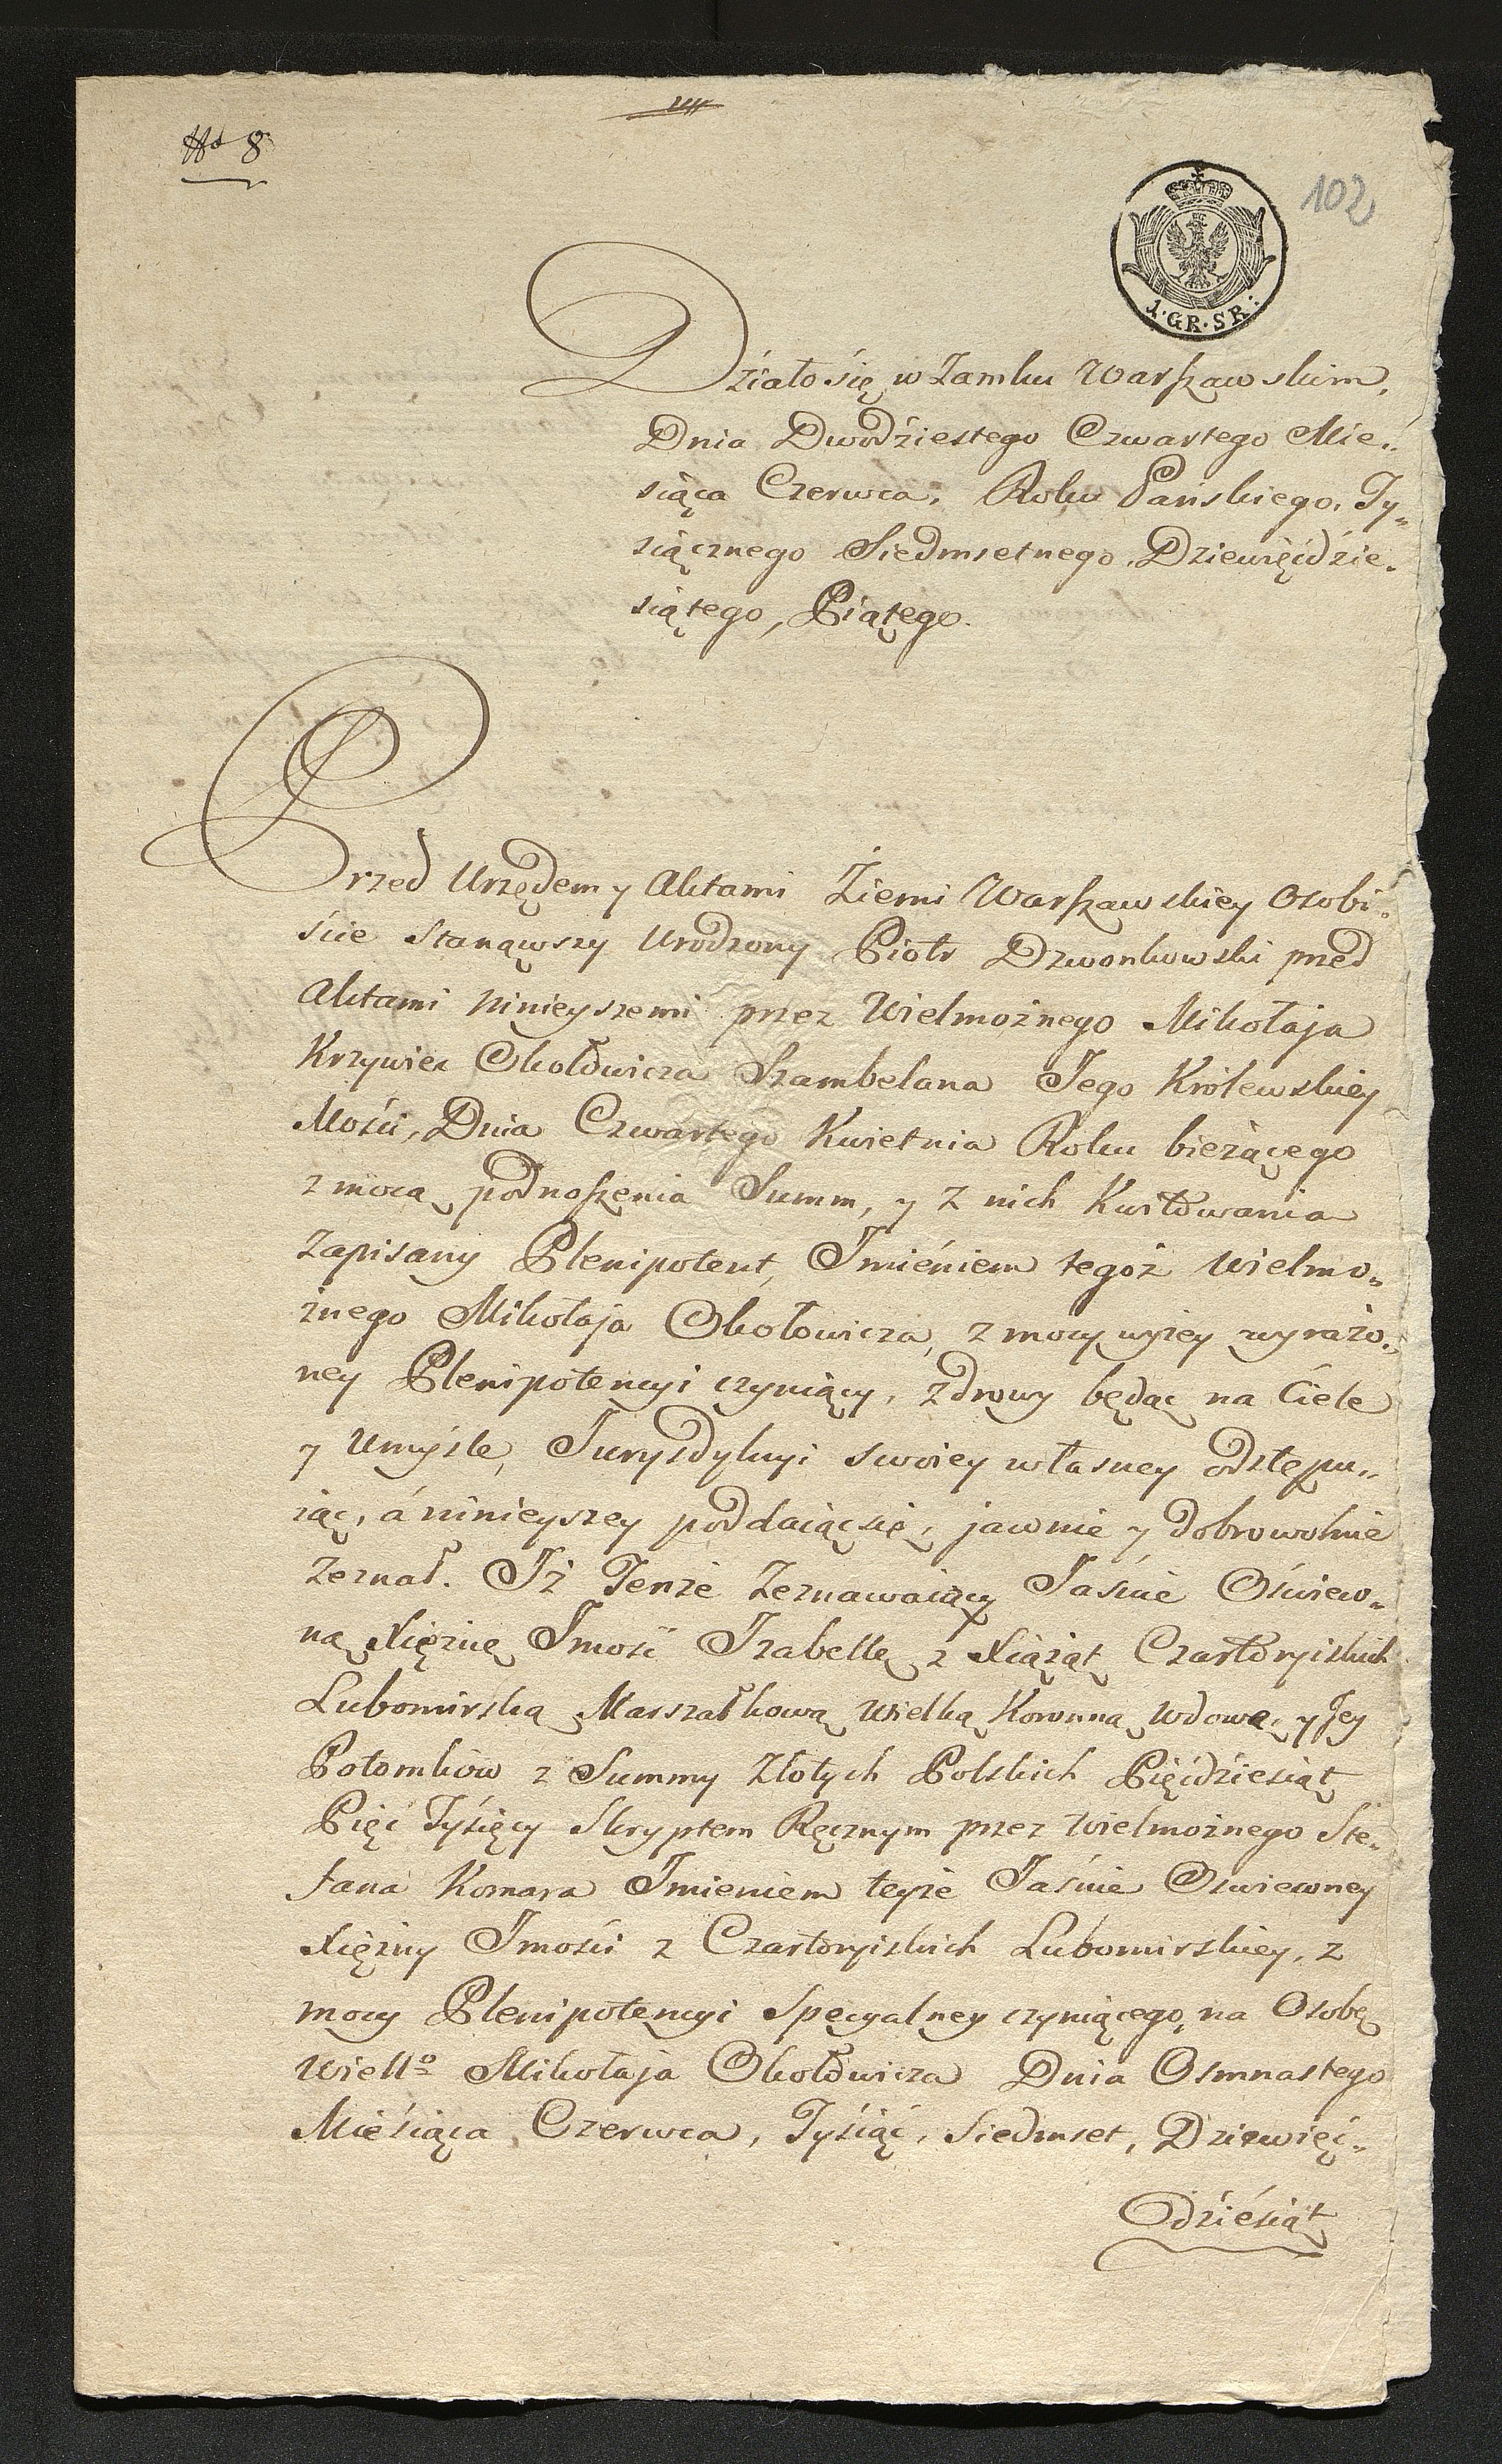 No 8
102
1.GR.SR:
Działo się w Zamku Warszawskim,
Dnia Dwodziestego Czwartego Mie„
siąca Czerwca, Roku Pańskiego, Ty„
siącznego Siedmsetnego, Dziewięćdzie„
siątego, Piątego.
Przed Urzędem y Aktami Ziemi Warszawskiey Osobi„
ście Stanąwszy Urodzony Piotr Dzwonkowski przed
Aktami ninieyszemi przez Wielmożnego Mikołaja
Krzywiec Okołowicza Szambelana Jego Królewskiey
Mości, Dnia Czwartego Kwietnia Roku bieżącego
z mocą podnoszenia Summ, y z nich Kwitowania
Zapisany Plenipotent, Imieniem tegoż Wielmo„
żnego Mikołaja Okołowicza, z mocy wyżey wyrażo„
ney Plenipotencyi czyniący, zdrowy będąc na Ciele
y Umyśle, Jurysdykcyi swoiey własney odstępu„
iąc, á ninieyszey poddaiąc się, jawnie y dobrowolnie
Zeznał. Iż Tenże Zeznawaiący Jaśnie Oświeco„
ną Xiężnę Jmość Izabellę z Xiążąt Czartoryiskich
Lubomirską Marszałkową Wielką Koronną Wdowę, y Jey
Potomków z Summy Złotych Polskich Pięćdziesiąt
Pięć Tysięcy Skryptem Ręcznym przez Wielmożnego Ste„
fana Komara Imieniem teyże Jaśnie Oświeconey
Xiężny Jmości z Czartoryiskich Lubomirskiey, z
mocy Plenipotencyi Specyalney czyniącego, na Osobę
Wiello Mikołaja Okołowicza Dnia Osmnastego
Miesiąca Czerwca, Tysiąc, Siedmset, Dziewięć„
dziesiąt